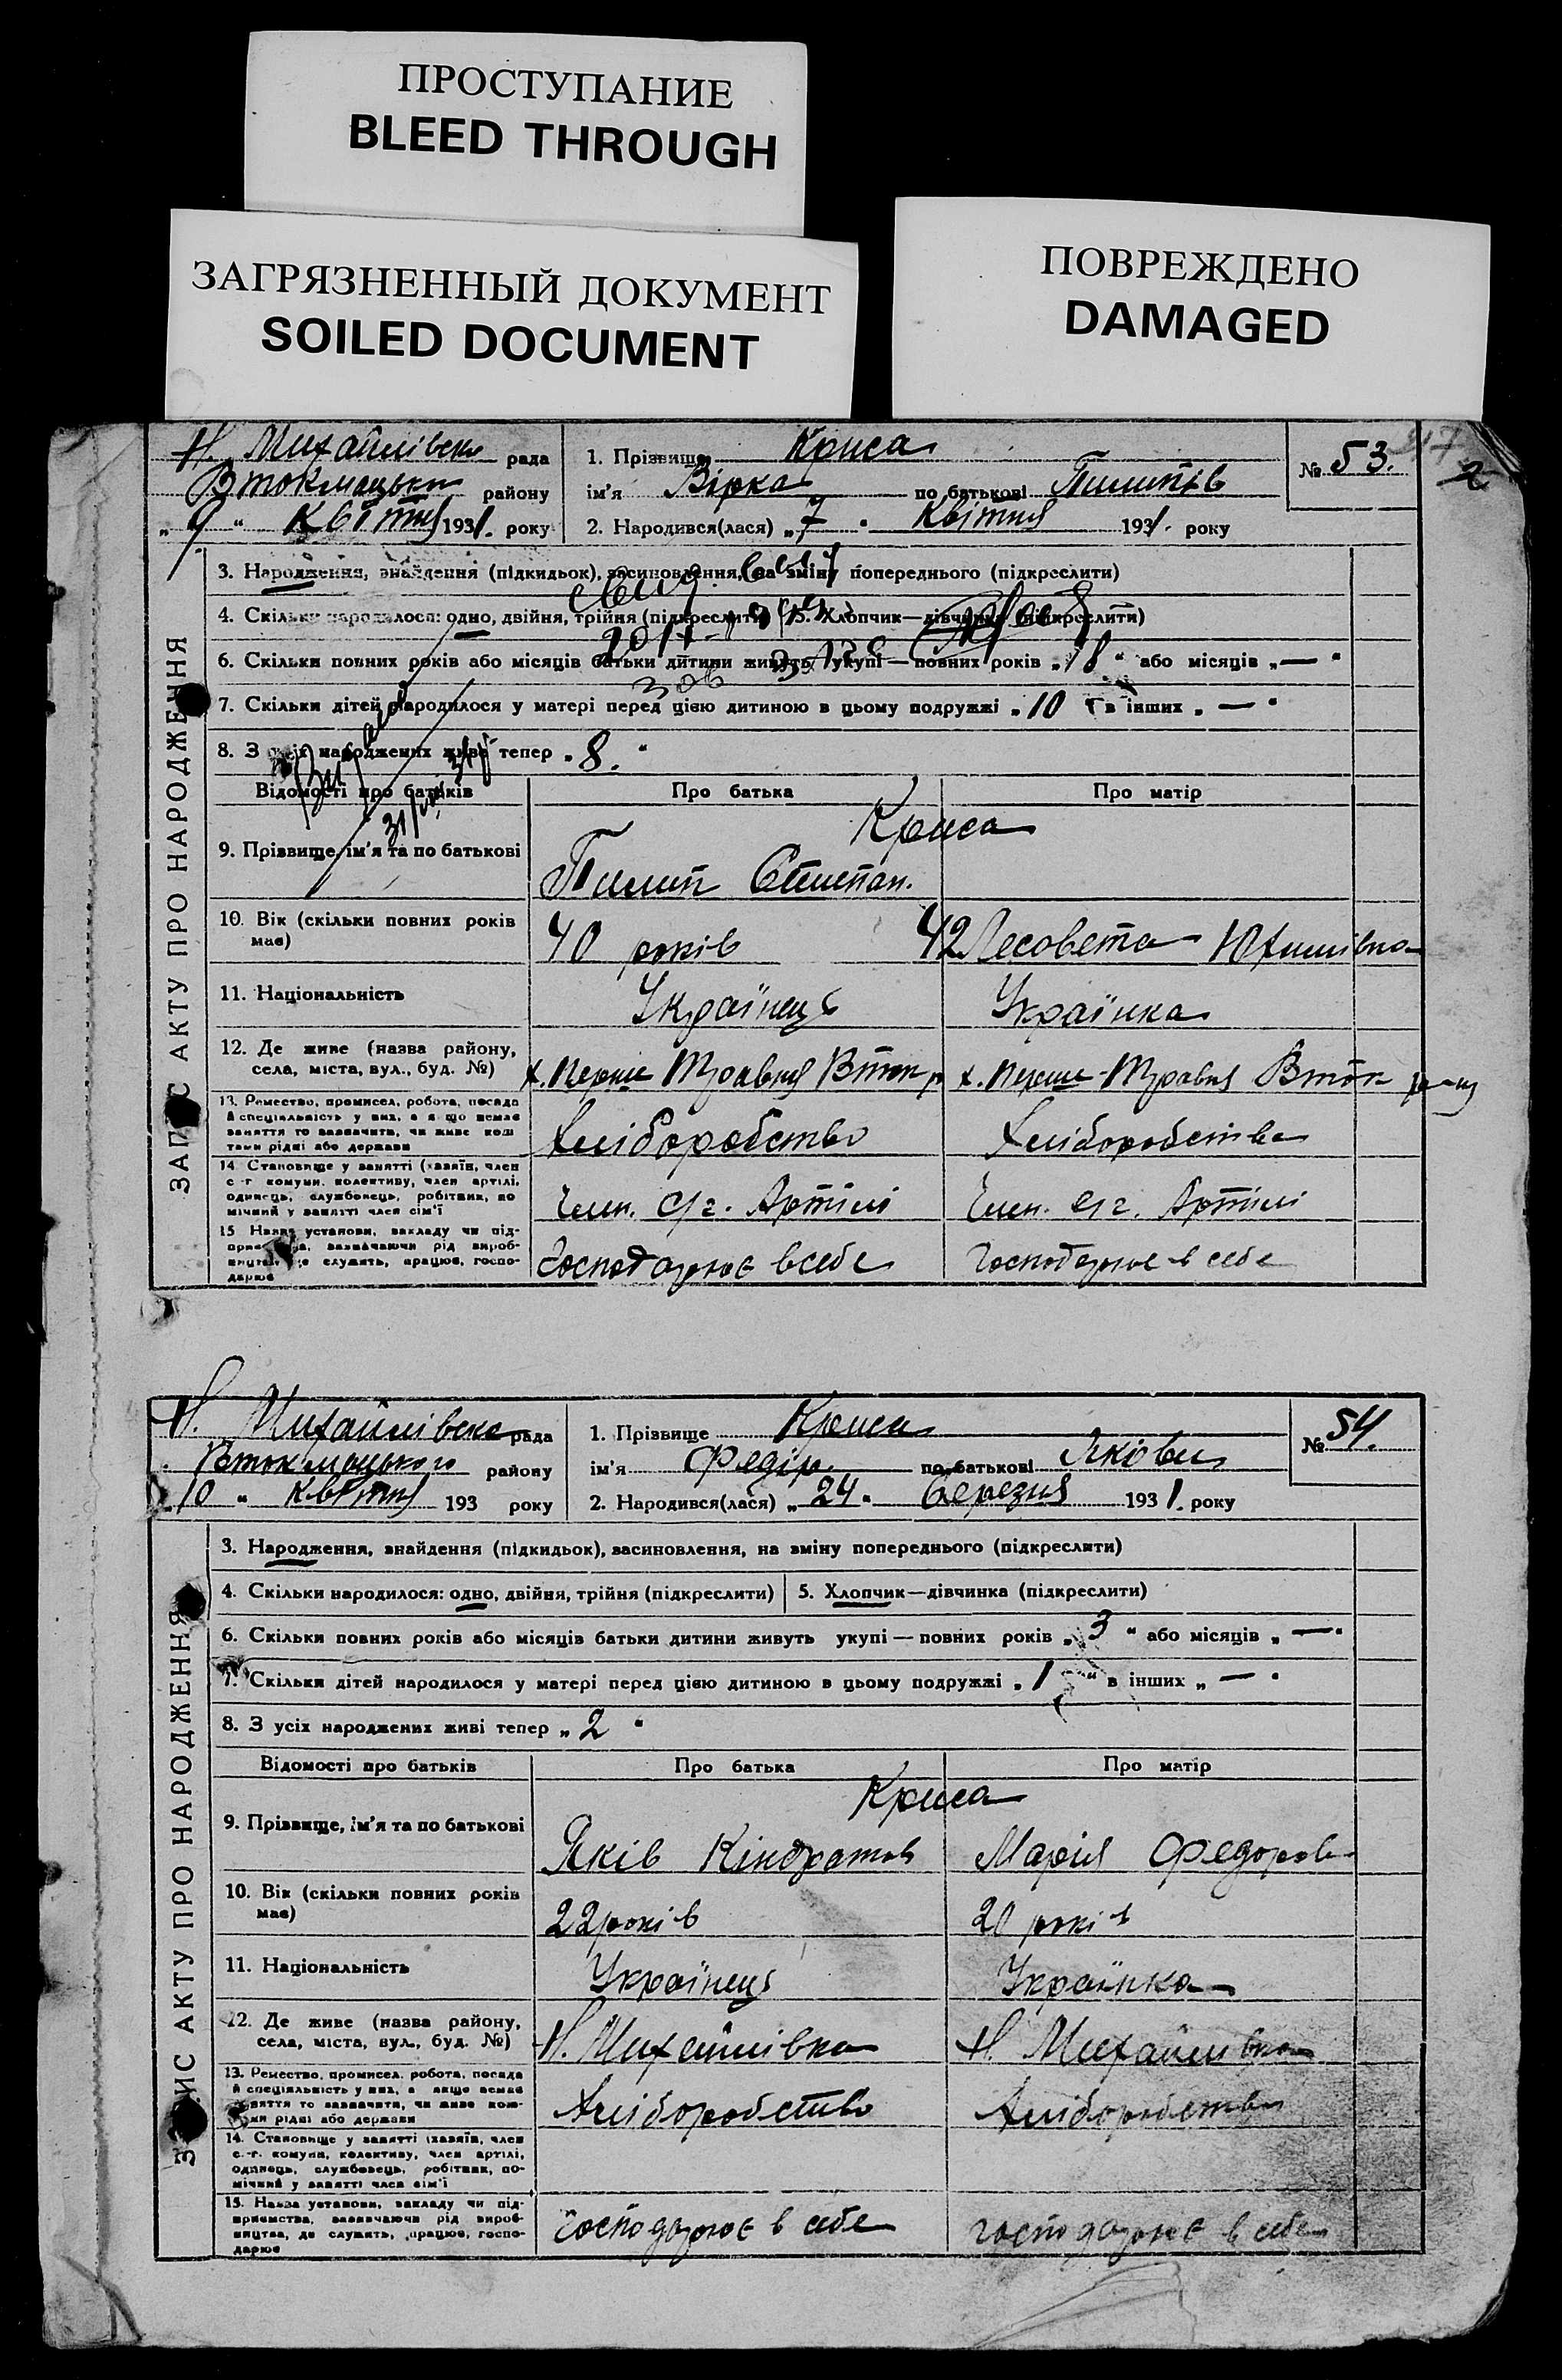 ПРОСТУПАНИЕ
BLEED THROUGH
ЗАГРЯЗНЕННЫЙ ДОКУМЕНТ
SOILED DOCUMENT
ПОВРЕЖДЕНО
DAMAGED
Н. Михайлівска рада
Втокмацьки району
„ 9 “ Квітня 1931. року
1. Прізвище Криса
ім'я Вірка по батькові Пилипів
2. Народився(лася) „ 7 “ Квітня 1931. року
№ 53.
2
ЗАПИС АКТУ ПРО НАРОДЖЕННЯ
3. Народження, знайдення (підкидьок), засиновлення, на зміну попереднього (підкреслити)
4. Скільки народилося: одно, двійня, трійня (підкреслити) 5. Хлопчик—дівчинка (підкреслити)
6. Скільки повних років або місяців батьки дитини живуть укупі — повних років „ 18 “ або місяців „ — “
7. Скільки дітей народилося у матері перед цією дитиною в цьому подружжі „ 10 “ в інших „ — “
8. З усіх народжених живі тепер „ 8. “
Відомості про батьків Про батька Про матір
Криса
9. Прізвище, ім'я та по батькові Пилип Степан.
10. Вік (скільки повних років має) 40 років 42 Лесовета Юхимівна
11. Національність Українець Українка
12. Де живе (назва району, села, міста, вул., буд. №) х. Перше Травня Вток р х. Перше-Травня Вток
13. Ремество, промисел, робота, посада й спеціяльність у них, а якщо немає заняття то зазначити, чи живе коштами рідні або держави Хліборобство Хліборобство
14. Становище у занятті (хазяїн, член с.-г. комуни, колективу, член артілі, одинець, службовець, робітник, помічний у занятті член сім'ї Член. с/г. Артілі Член. с/г. Артілі
15. Назва установи, закладу чи підприємства, зазначаючи рід виробництва, де служить, працює, господарює Господарює в себе Господарює в себе
Н. Михайлівска рада
Втокмацького району
„ 10 “ Квітня 193 року
1. Прізвище Криса
ім'я Федір. по батькові Якови
2. Народився(лася) „ 24 “ березня 1931. року
№ 54.
ЗАПИС АКТУ ПРО НАРОДЖЕННЯ
3. Народження, знайдення (підкидьок), засиновлення, на зміну попереднього (підкреслити)
4. Скільки народилося: одно, двійня, трійня (підкреслити) 5. Хлопчик—дівчинка (підкреслити)
6. Скільки повних років або місяців батьки дитини живуть укупі — повних років „ 3 “ або місяців „ — “
7. Скільки дітей народилося у матері перед цією дитиною в цьому подружжі „ 1 “ в інших „ — “
8. З усіх народжених живі тепер „ 2 “
Відомості про батьків Про батька Про матір
Криса
9. Прізвище, ім'я та по батькові Яків Кіндратов Марія Федоров
10. Вік (скільки повних років має) 22 років 20 років
11. Національність Українець Українка
12. Де живе (назва району, села, міста, вул., буд. №) Н. Михайлівка Н. Михайлівка
13. Ремество, промисел, робота, посада й спеціяльність у них, а якщо немає заняття то зазначити, чи живе коштами рідні або держави Хліборобство Хліборобство
14. Становище у занятті (хазяїн, член с.-г. комуни, колективу, член артілі, одинець, службовець, робітник, помічний у занятті член сім'ї
15. Назва установи, закладу чи підприємства, зазначаючи рід виробництва, де служить, працює, господарює Господарює в себе Господарює в себе